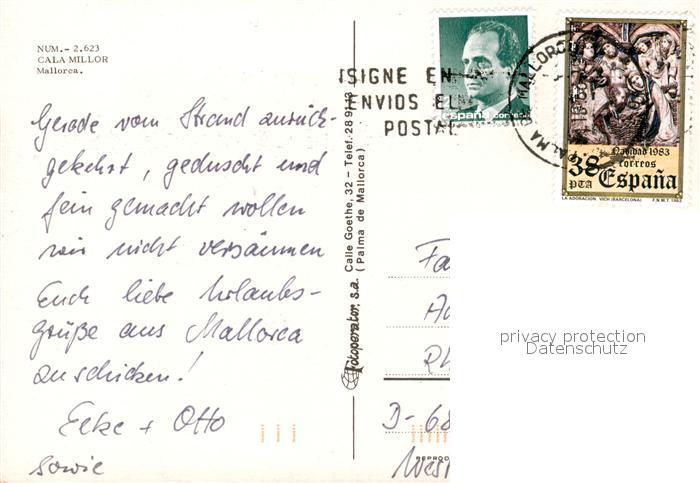 NUM.- 2.623
CALA MILLOR
Mallorca.
Gerade vom Strand zurück-
gekehrt, geduscht und
fein gemacht wollen
wir nicht versäumen
Euch liebe Urlaubs-
grüße aus Mallorca
zu schicken!
Elke + Otto
sowie
fotoperator, s.a. Calle Goethe, 32 – Telef. 28 91
(Palma de Mallorca)
ISIGNE EN
ENVIOS EL
POSTAL
PALMA MALLORC
España correos
Navidad 1983
correos
38
PTA España
LA ADORACION. VICH (BARCELONA) F.N.M.T. 1983
Fa
Rh
D-68
West
REPROD
privacy protection
Datenschutz